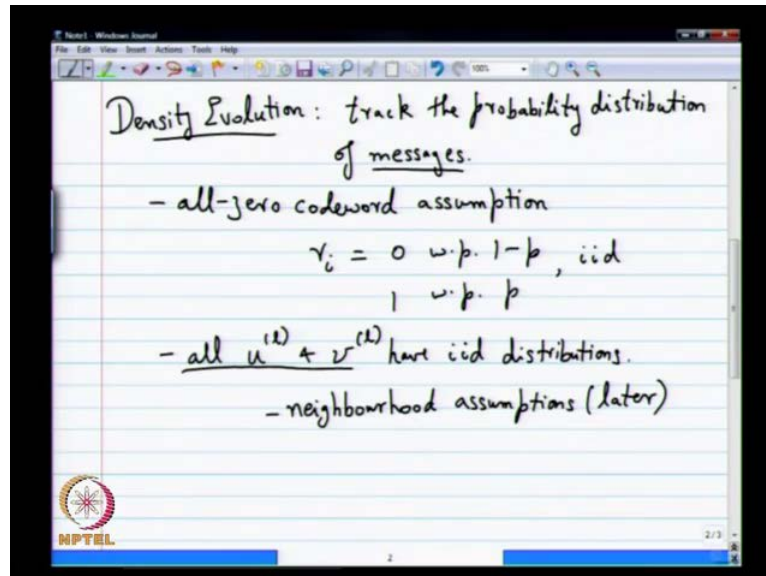 Note1 - Windows Journal
File Edit View Insert Actions Tools Help
100%
Density Evolution : track the probability distribution
of messages.
- all-zero codeword assumption
r_i = 0 w.p. 1-p , iid
1 w.p. p
- all u^(l) & v^(l) have iid distributions.
- neighbourhood assumptions (later)
NPTEL
2/3
2